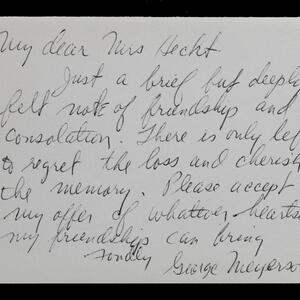 My dear Mrs Hecht.
Just a brief but deeply
felt note of friendship and
consolation. There is only lef
to regret the loss and cherish
the memory. Please accept
my offer of whatever hearts
my friendships can bring
Fondly
George Meyerso